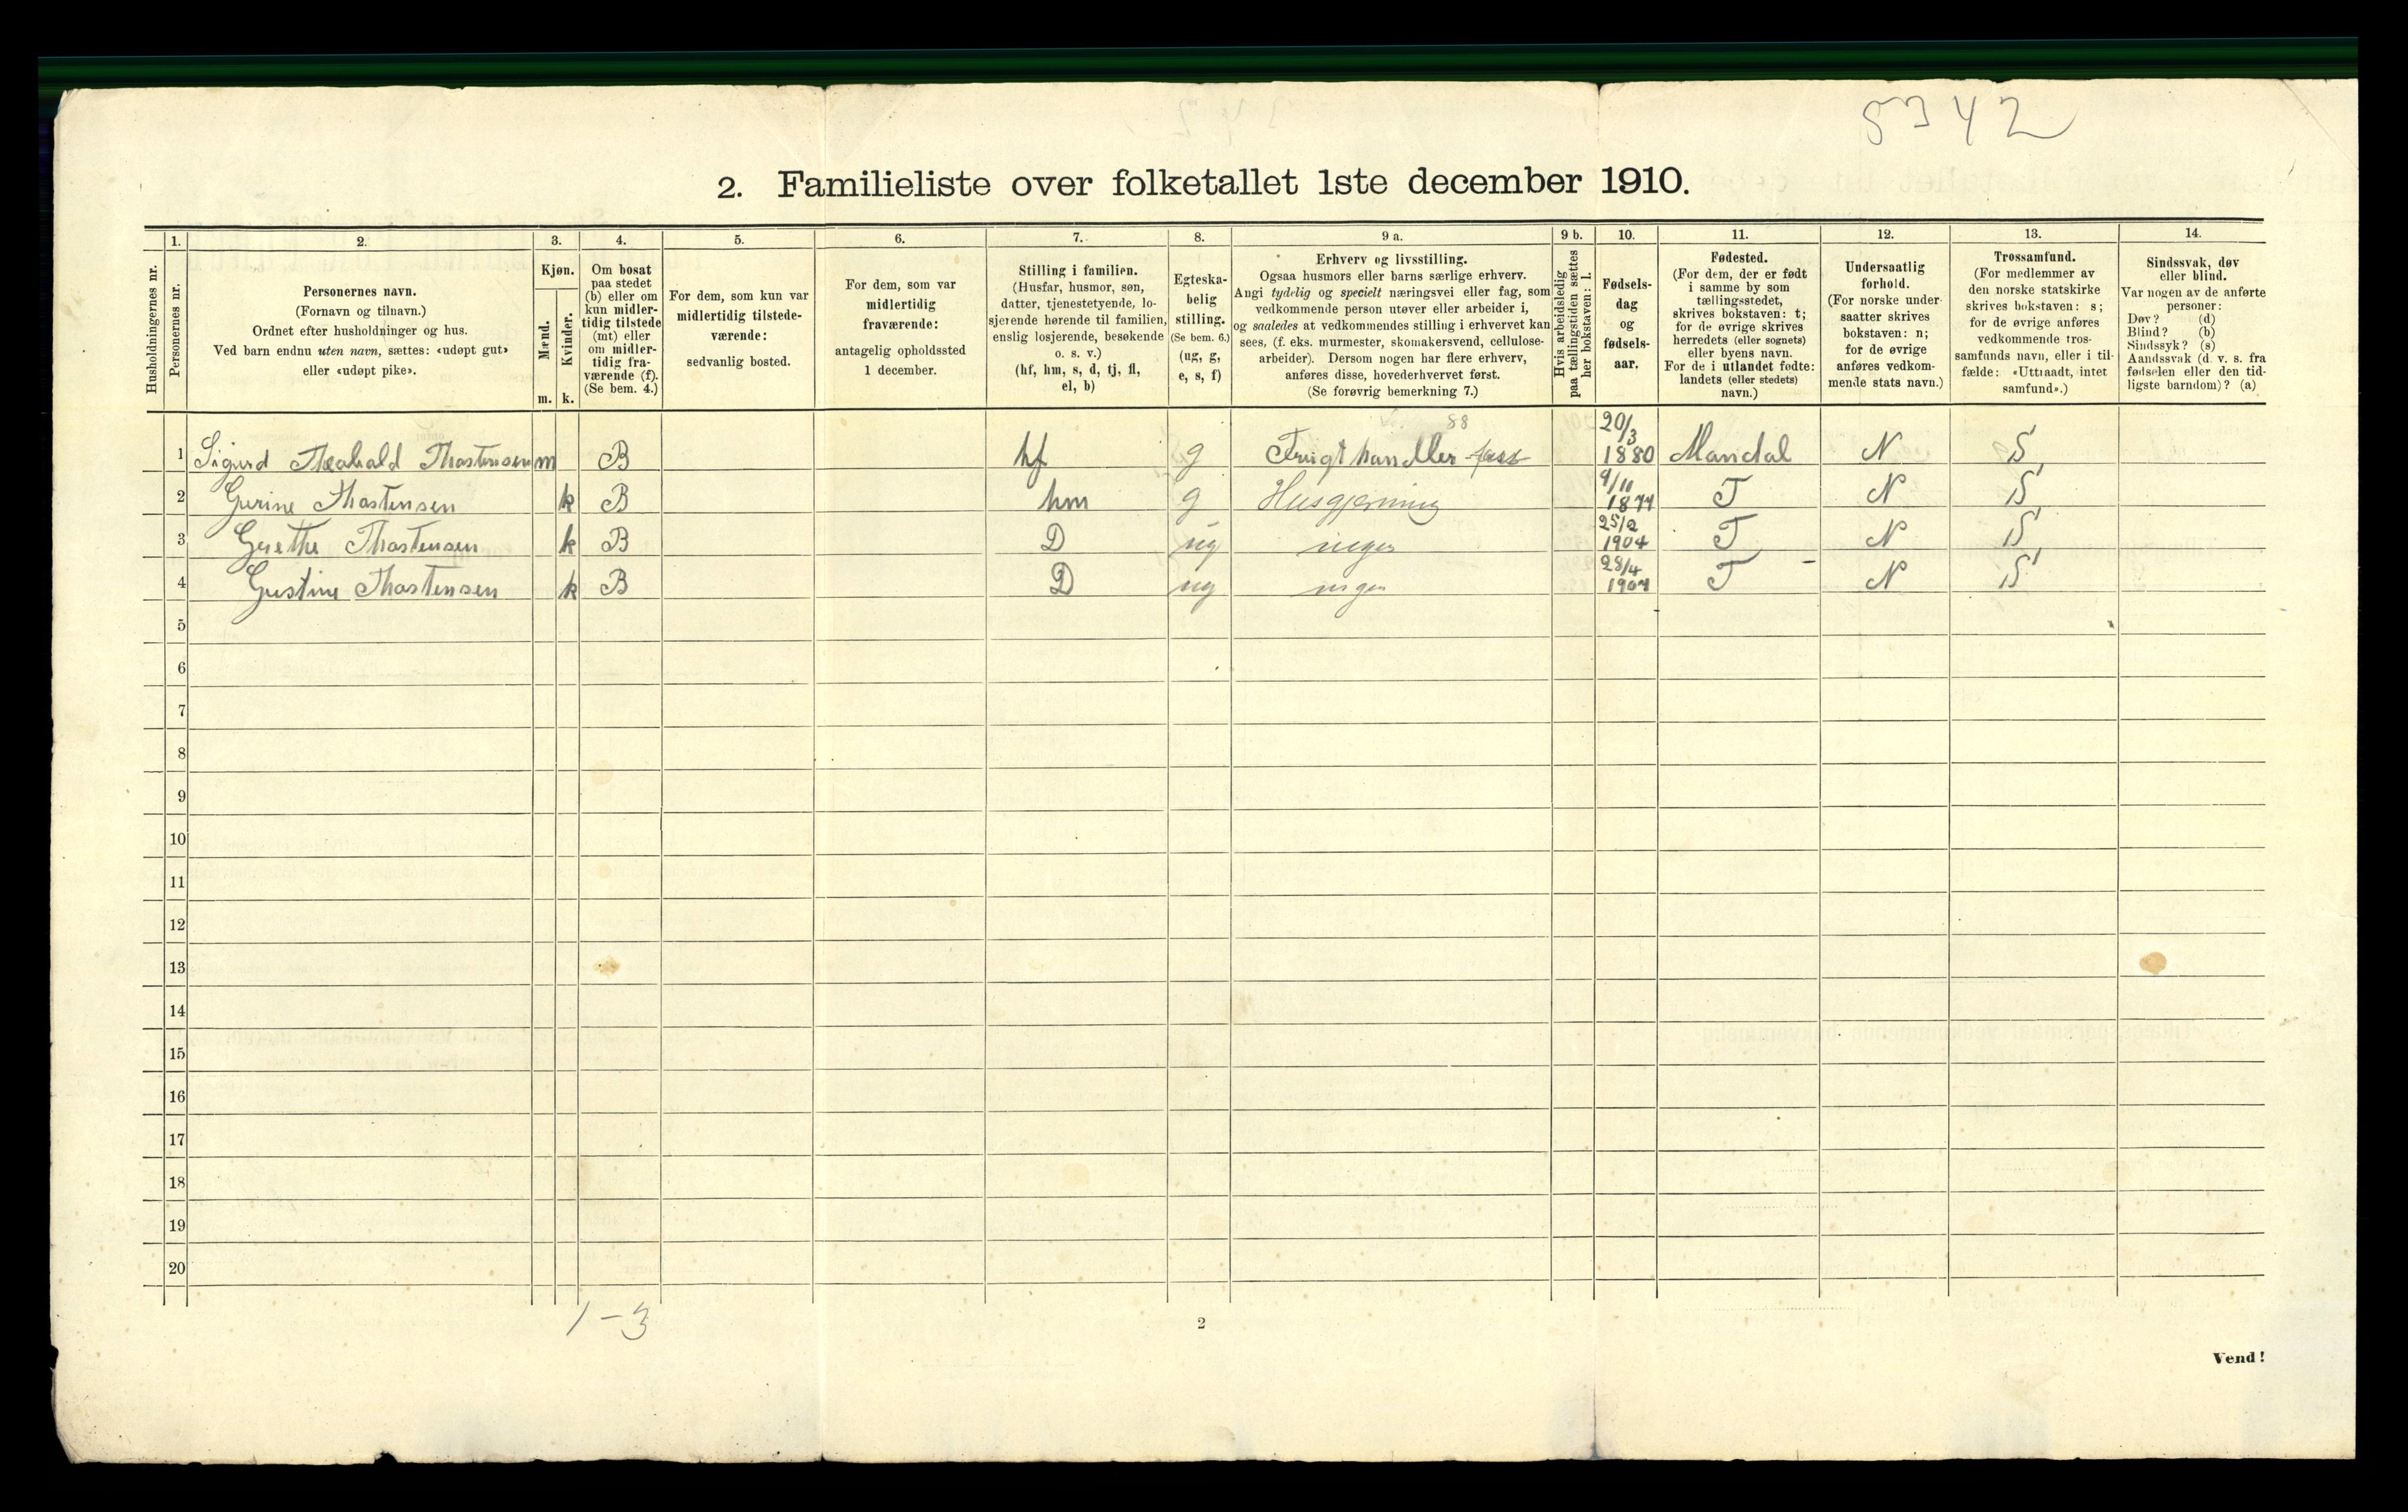 5342
2. Familieliste over folketallet 1ste december 1910.
Husholdningernes nr.
1.
Personernes nr.
2.
Personernes navn.
(Fornavn og tilnavn.)
Ordnet efter husholdninger og hus.
Ved barn endnu uten navn, sættes: «udøpt gut»
eller «udøpt pike».
3.
Kjøn.
Mænd.
Kvinder.
m. k.
4.
Om bosat
paa stedet
(b) eller om
kun midler-
tidig tilstede
(mt) eller
om midler-
tidig fra-
værende (f).
(Se bem. 4.)
5.
For dem, som kun var
midlertidig tilstede-
værende:
sedvanlig bosted.
6.
For dem, som var
midlertidig
fraværende:
antagelig opholdssted
1 december.
7.
Stilling i familien.
(Husfar, husmor, søn,
datter, tjenestetyende, lo-
sjerende hørende til familien,
enslig losjerende, besøkende
o. s. v.)
(hf, hm, s, d, tj, fl,
el, b)
8.
Egteska-
belig
stilling.
(Se bem. 6.)
(ug, g,
e, s, f)
9 a.
Erhverv og livsstilling.
Ogsaa husmors eller barns særlige erhverv.
Angi tydelig og specielt næringsvei eller fag, som
vedkommende person utøver eller arbeider i,
og saaledes at vedkommendes stilling i erhvervet kan
sees, (f. eks. murmester, skomakersvend, cellulose-
arbeider). Dersom nogen har flere erhverv,
anføres disse, hovederhvervet først.
(Se forøvrig bemerkning 7.)
9 b.
Hvis arbeidsledig
paa tællingstiden sættes
her bokstaven: l.
10.
Fødsels-
dag
og
fødsels-
aar.
11.
Fødested.
(For dem, der er født
i samme by som
tællingsstedet,
skrives bokstaven: t;
for de øvrige skrives
herredets (eller sognets)
eller byens navn.
For de i utlandet fødte:
landets (eller stedets)
navn.)
12.
Undersaatlig
forhold.
(For norske under-
saatter skrives
bokstaven: n;
for de øvrige
anføres vedkom-
mende stats navn.)
13.
Trossamfund.
(For medlemmer av
den norske statskirke
skrives bokstaven: s;
for de øvrige anføres
vedkommende tros-
samfunds navn, eller i til-
fælde: «Uttraadt, intet
samfund».)
14.
Sindssvak, døv
eller blind.
Var nogen av de anførte
personer:
Døv? (d)
Blind? (b)
Sindssyk? (s)
Aandssvak (d. v. s. fra
fødselen eller den tid-
ligste barndom)? (a)
88
1 Sigurd Theobald Thostensen m B hf g Frugthandler 20/3 1880 Mandal N S
2 Gurine Thostensen k B hm g Husgjerning 9/11 1874 T N S
3 Grethe Thostensen k B D ug ingen 25/2 1904 T N S
4 Gustine Thostensen k B D ug ingen 28/4 1907 T N S
5
6
7
8
9
10
11
12
13
14
15
16
17
18
19
20
1-3
2
Vend!